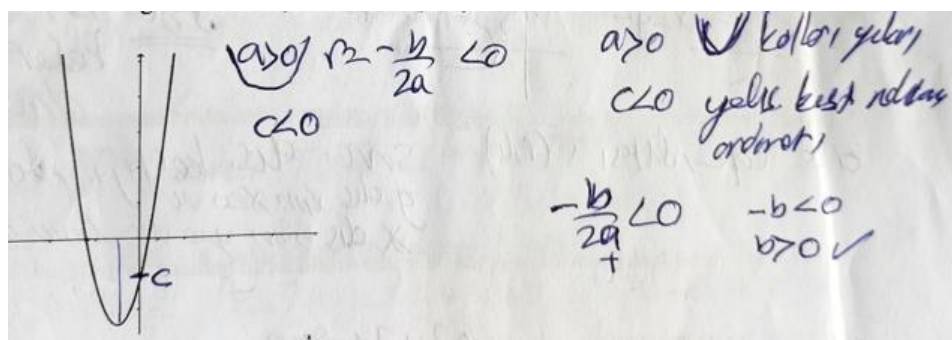 a>0 r = -b/2a <0
c<0
c
a>0 kolları yukarı
c<0 y ekseni kestiği noktanın
ordinatı
-b/2a <0
+
-b<0
b>0 ✓